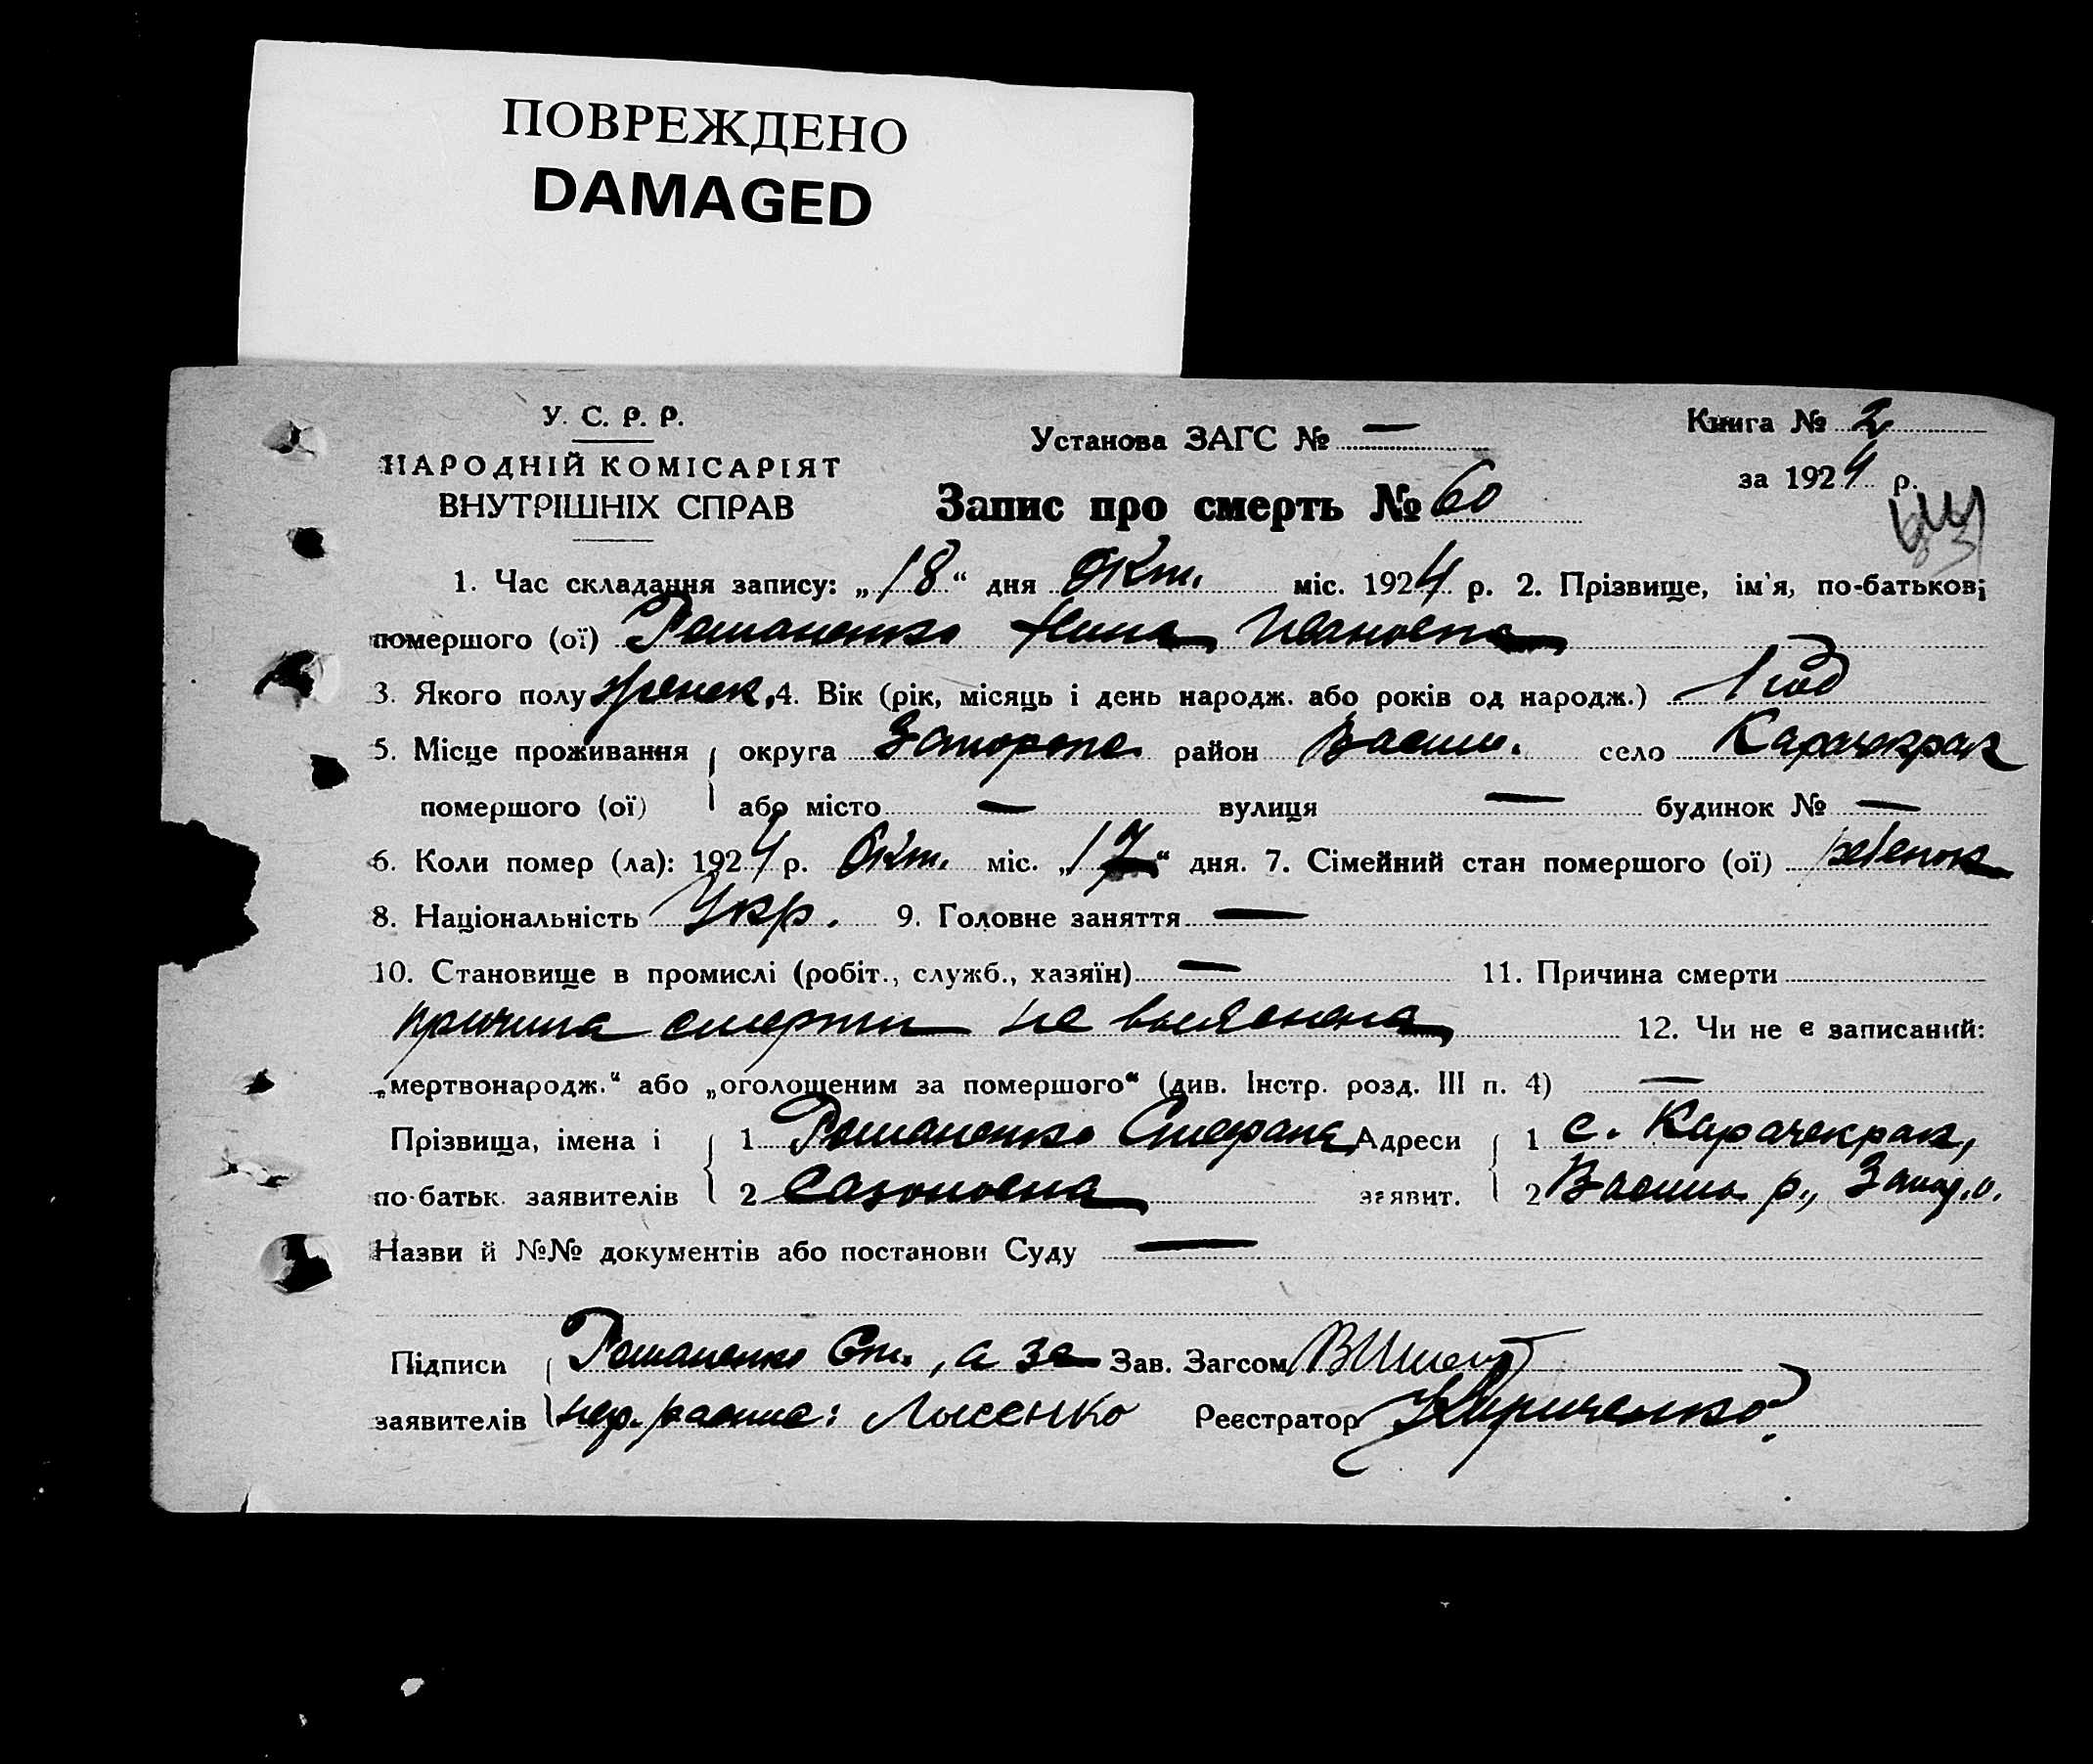 ПОВРЕЖДЕНО
DAMAGED
У. С. Р. Р.
НАРОДНІЙ КОМІСАРІЯТ
ВНУТРІШНІХ СПРАВ
Установа ЗАГС № —
Книга № 2
за 1924 р.
Запис про смерть № 60
1. Час складання запису: „18“ дня Окт. міс. 1924 р. 2. Прізвище, ім'я, по-батькові
помершого (ої) Романенко Нина Ивановна
3. Якого полу женск. 4. Вік (рік, місяць і день народж. або років од народж.) 1 год
5. Місце проживання округа Запорож. район Васил. село Карачекрак
помершого (ої) або місто — вулиця — будинок № —
6. Коли помер (ла): 1924 р. Окт. міс. „17“ дня. 7. Сімейний стан помершого (ої) ребенок
8. Національність Укр. 9. Головне заняття —
10. Становище в промислі (робіт., служб., хазяїн) — 11. Причина смерти
причина смерти не выяснена 12. Чи не є записаний:
„мертвонародж.“ або „оголошеним за помершого“ (див. Інстр. розд. III п. 4) —
Прізвища, імена і 1 Романенко Стефана Адреси 1 с. Карачекрак,
по-батьк. заявителів 2 Сазоновна заявит. 2 Васил. р., Запор. о.
Назви й №№ документів або постанови Суду —
Підписи Романенко Ст., а за Зав. Загсом
заявителів негр. распис: Лысенко Реєстратор Кириченко